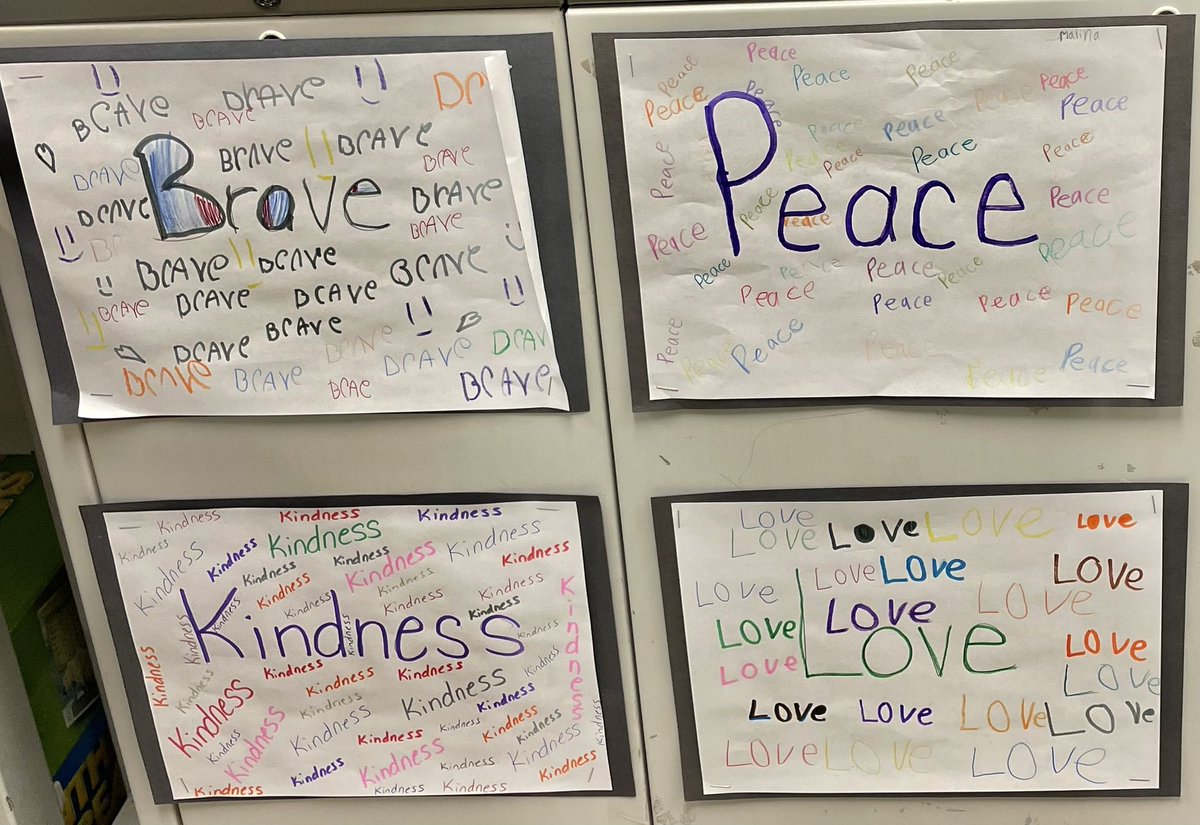 BrAve DrAve Dr
BrAve
BrAve BrAve
BrAve
DrAve Brave BrAve
DrAve
BrAve
Br
BrAve DrAve BrAve
BrAve DrAve DrAve
BrAve
DrAve BrAve DrAve DrAv
BrAve BrAve BrAe BrAve
Malina
Peace
Peace Peace Peace Peace
Peace Peace Peace
Peace Peace
Peace Peace Peace
Peace Peace Peace
Peace Peace Peace Peace
Peace Peace
Peace Peace Peace Peace
Peace Peace Peace Peace
Peace Peace Peace
Peace Peace Peace
Peace Peace
Kindness Kindness Kindness
Kindness Kindness Kindness
Kindness Kindness Kindness Kindness Kindness
Kindness Kindness Kindness
Kindness Kindness Kindness Kindness
Kindness Kindness Kindness Kindness
Kindness Kindness Kindness
Kindness Kindness Kindness Kindness
Kindness Kindness Kindness Kindness
Kindness Kindness Kindness Kindness Kindness
Kindness Kindness Kindness Kindness
Kindness Kindness Kindness Kindness Kindness
Kindness Kindness Kindness Kindness
Love Love Love Love
Love
Love Love Love
Love Love Love
Love Love Love
Love Love
Love Love Love Love
Love Love Love